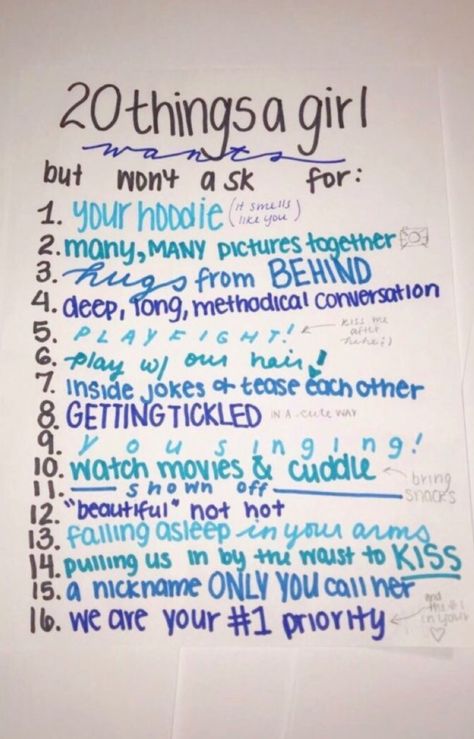 20 things a girl
wants
but won't ask for:
1. your hoodie (it smells
like you)
2. many, MANY pictures together
3. hugs from BEHIND
4. deep, long, methodical conversation
5. PLAYFIGHT! kiss me
after
hehe:)
6. play w/ our hair!
7. inside jokes & tease each other
8. GETTING TICKLED IN A cute WAY
9. you singing!
10. watch movies & cuddle
bring
snacks
11. shown off
12. "beautiful" not hot
13. falling asleep in your arms
14. pulling us in by the waist to KISS
15. a nickname ONLY YOU call her
16. we are your #1 priority and
the #1
in your